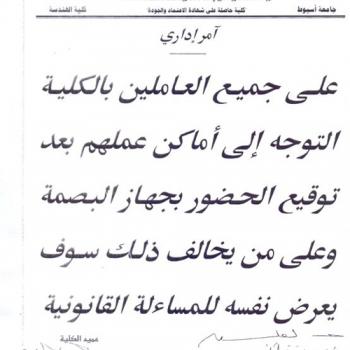 جامعة أسيوط كلية حاصلة على شهادة الاعتماد والجودة كلية الهندسة
أمر إداري
على جميع العاملين بالكلية
التوجه إلى أماكن عملهم بعد
توقيع الحضور بجهاز البصمة
وعلى من يخالف ذلك سوف
يعرض نفسه للمساءلة القانونية
عميد الكلية